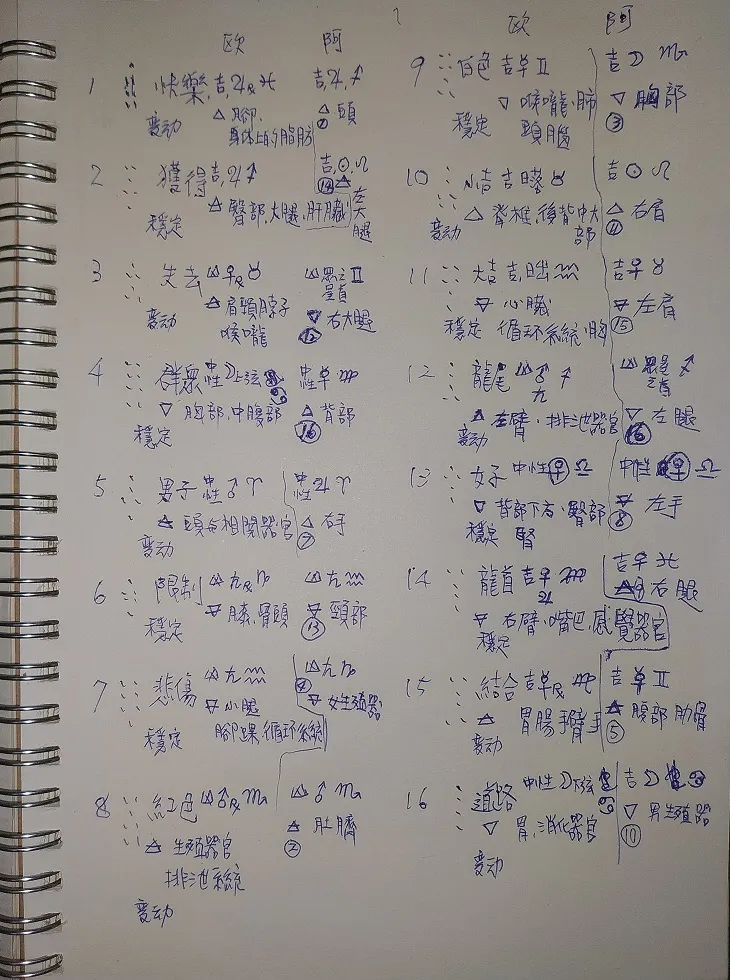 歐 阿
1 快樂,吉,♃℞♓ 吉,♃,♐
變动 △ 腳, △ 頭
身体上的脂肪
2 獲得吉,♃♐ 吉,☉,♌
穩定 🜁 臀部,大腿,肝臟 左大腿
3 失去 凶♀℞♉ 凶 ♊
變动 🜁 肩頸脖子 右大腿
喉嚨 ⑫
4 群衆 中性☽上弦♋ 中性 ♍
▽ 胸部,中腹部 🜁 背部
穩定 ⑯
5 男子 中性♂♈ 中性♃♈
🜁 頭与相関器官 △ 右手
變动 ⑦
6 限制 凶♄℞♑ 凶♄♒
穩定 🜃 膝,骨頭 🜃 頸部
⑬
7 悲傷 凶♄♒ 凶♄♑
🜃 小腿 🜃 女生殖器
穩定 腳踝,循环系統
8 紅色 凶♂℞♏ 凶♂♏
🜁 生殖器官 🜁 肚臍
排泄系統 ②
變动
歐 阿
9 白色 吉 ♊ 吉☽♏
▽ 喉嚨,肺 ▽ 胸部
穩定 頸腦 ③
10 小吉 吉 ♉ 吉☉♌
△ 脊椎,後背中大部 △ 右肩
變动 ⑪
11 大吉 吉,日出♒ 吉♀♉
🜃 心臟 🜃 左肩
穩定 循环系統,胸 ⑮
12 龍尾 凶♂♐ 凶 ♐
♄
🜁 左臂,排泄器官 ▽ 左腿
變动 ⑯
13 女子 中性♀♎ 中性 ♀♎
▽ 背部下方,臀部 🜃 左手
穩定 腎 ⑧
14 龍首 吉♀♍ 吉 ♓
♃ 右腿
🜃 右臂,嘴巴,感覺器官
穩定
15 結合 吉 ℞♍ 吉 ♊
🜁 胃腸手臂手 🜁 腹部肋骨
變动 ⑤
16 道路 中性☽下弦♋ 吉☽♋
▽ 胃,消化器官 ▽ 男生殖器
⑩
變动